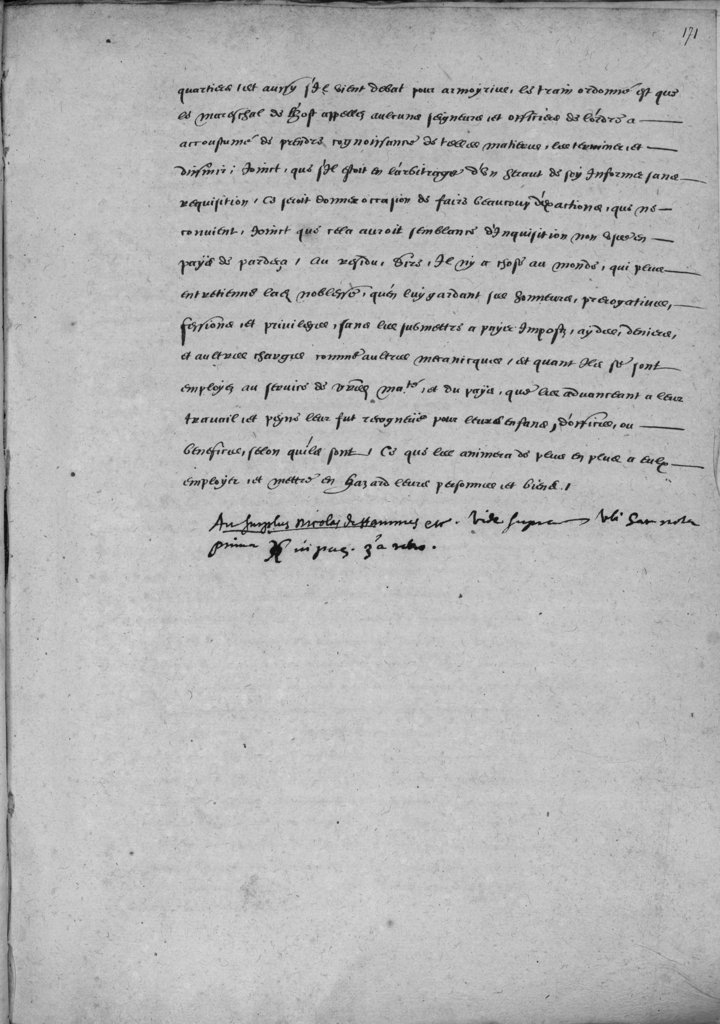 171
quartiers / et aussy s'Il vient debat pour armoyries, le train ordonné est que
le mareschal de l'host appellez aulcuns seigneurs, et officiers de l'ordre a
accoustumé de prendre cognoissance de telles matieres, les terminer, et
diffinir, Joinct, que s'Il estoit en l'arbitraige d'un heraut de soy Informer sans
requisition, Ce seroit donner occasion de faire beaucoup d'exactions, que ne
convient, Joinct que cela auroit semblance d'Inquisition non usee en
pays de pardeça / Au residu, Sire, Il n'y a chose au monde, qui plus
entretienne la noblesse, qu'en luy gardant ses honneurs, prerogatives,
fessions, et privileges, sans les submettre a payer Impostz, aydes, deniers,
et aultres charges comme aultres mecanicques, et quant Ilz se sont
employez au service de vostre ma.te, et du pays, que les advanceant a leur
travail, et peyne leur fut recogneue pour leurs enfans, d'offices, ou
benefices, selon qu'ils sont / Ce que les animera de plus en plus a eulx
employer, et mettre en hazard leurs personnes et biens /
Au surplus Nicolas de Hammes etc. vide supra ubi nota
prima iij pag. 3a